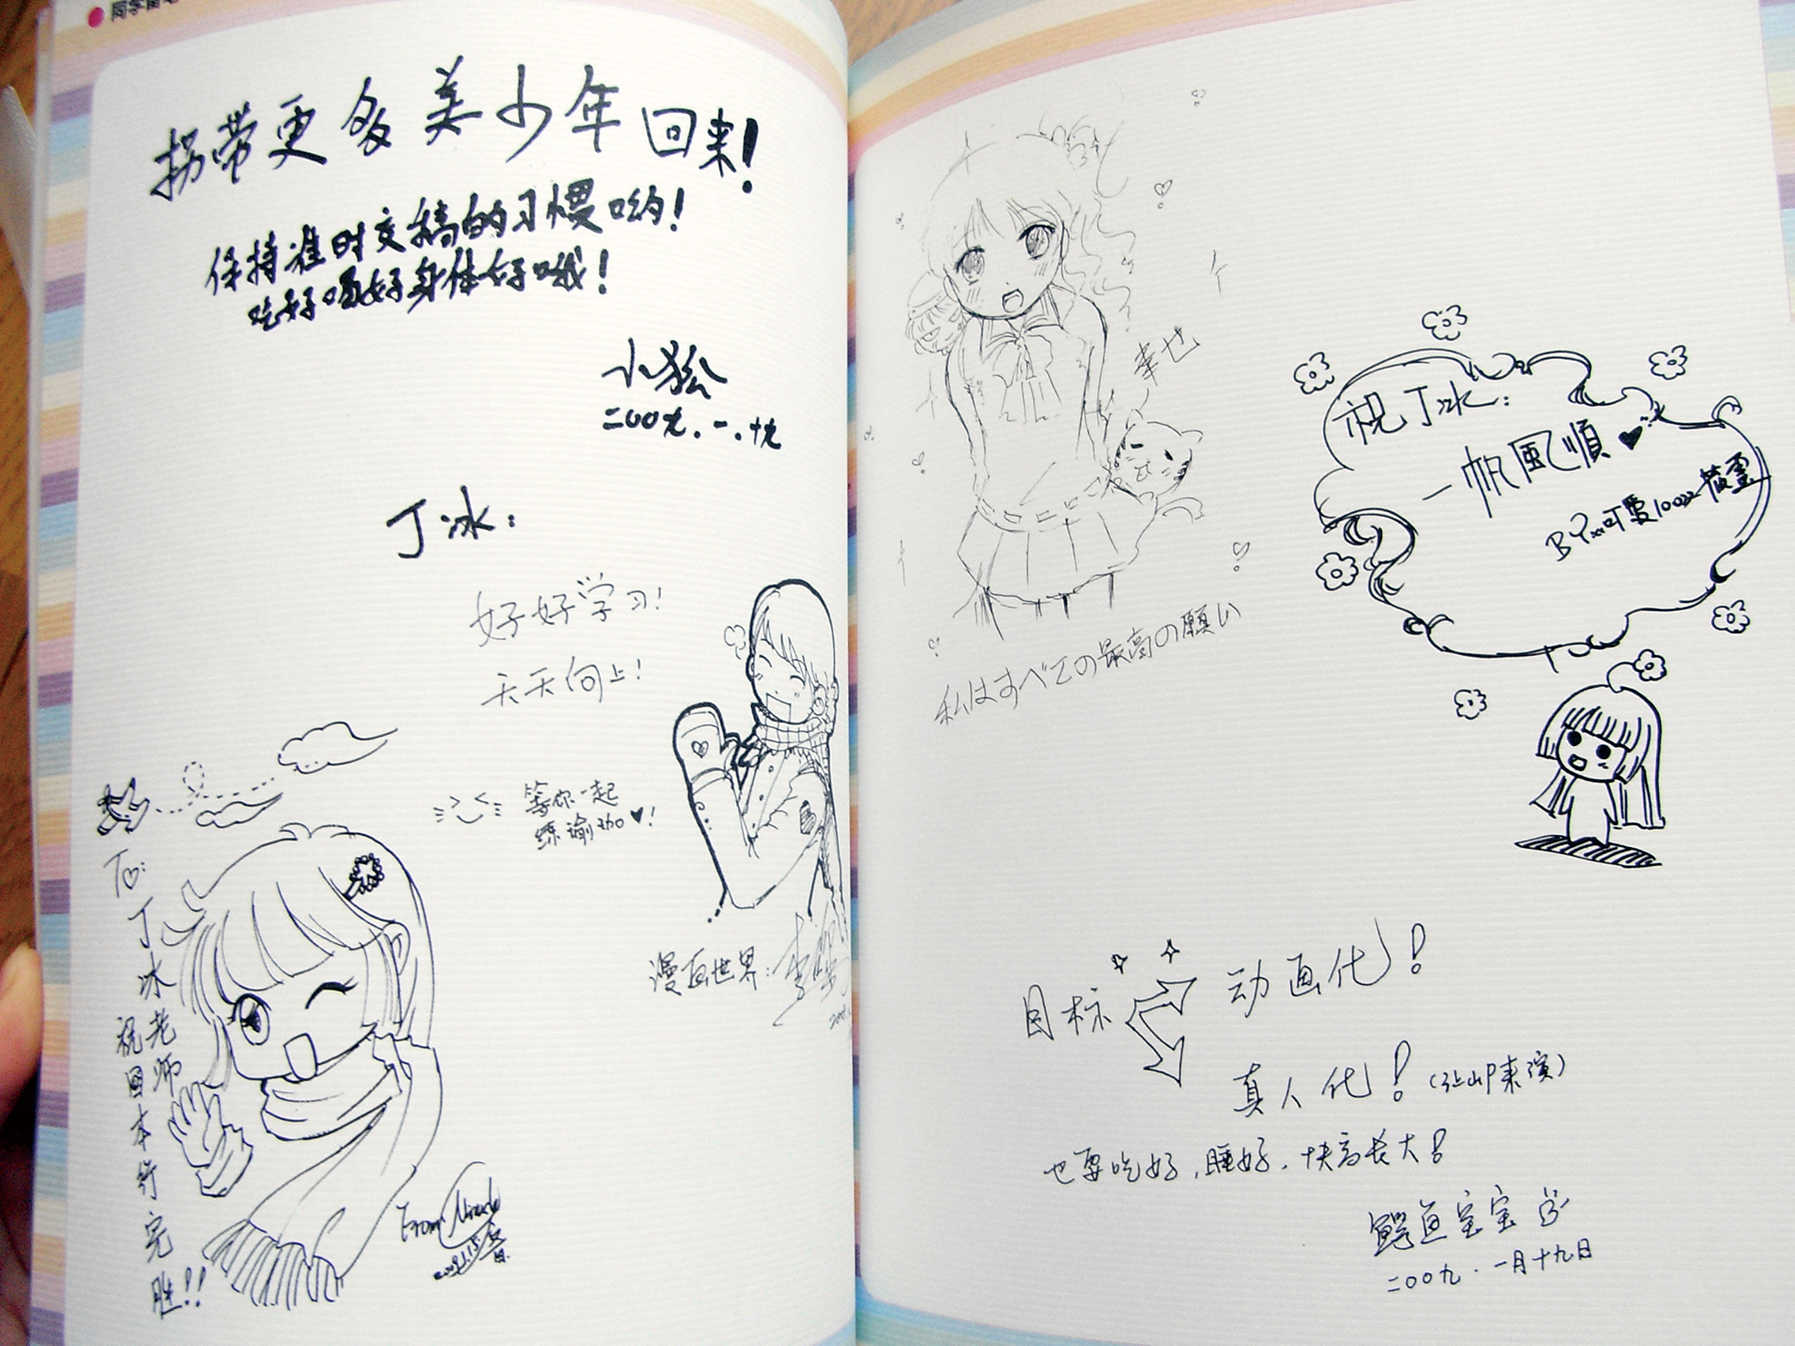 拐带更多美少年回来!
保持准时交稿的习惯哟!
吃好喝好身体好哦!
小狐
二00九.一.十九
丁冰:
好好学习!
天天向上!
等你一起
练瑜珈♥!
漫画世界:
To:
丁冰老师
祝日本行完胜!!
From Miracle
幸也
私はすべての最高の願い
祝丁冰:
一帆風順♥
目标
动画化!
真人化!
也要吃好,睡好.快高长大!
鳄鱼宝宝
二00九.一月十九日